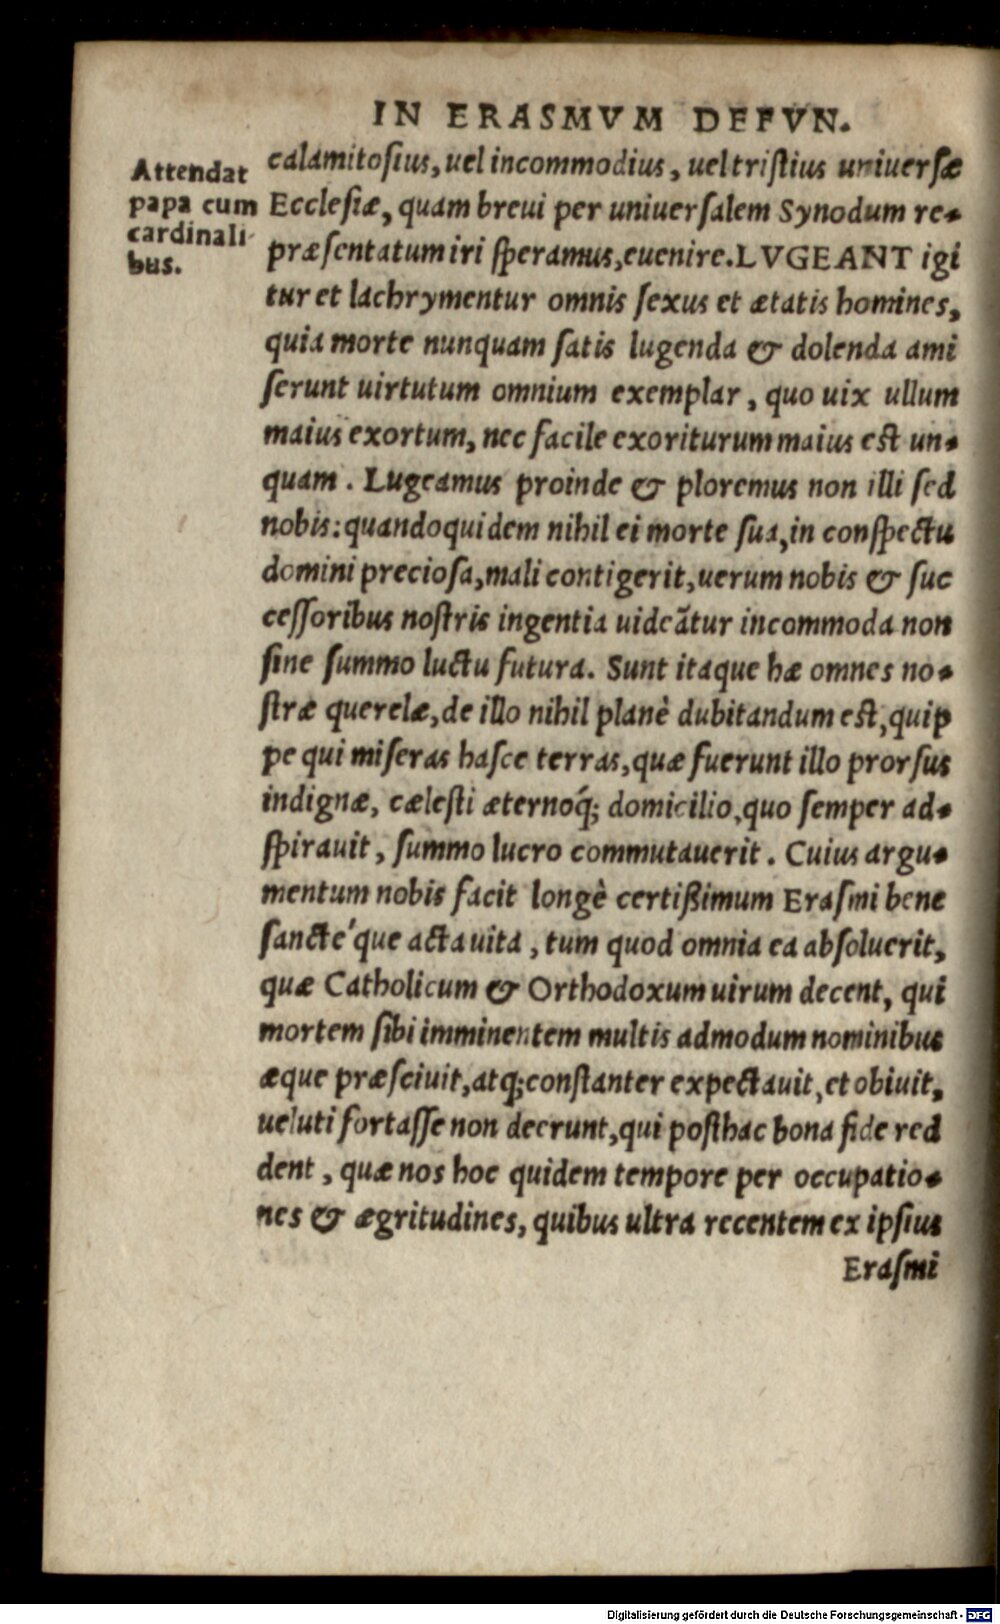 IN ERASMVM DEFVN.
Attendat
papa cum
cardinali-
bus.
calamitosius, uel incommodius, uel tristius uniuersæ
Ecclesiæ, quam breui per uniuersalem Synodum re-
præsentatum iri speramus, euenire. LVGEANT igi
tur et lachrymentur omnis sexus et ætatis homines,
quia morte nunquam satis lugenda & dolenda ami
serunt uirtutum omnium exemplar, quo uix ullum
maius exortum, nec facile exoriturum maius est un-
quam. Lugeamus proinde & ploremus non illi sed
nobis: quandoquidem nihil ei morte sua, in conspectu
domini preciosa, mali contigerit, uerum nobis & suc
cessoribus nostris ingentia uideãtur incommoda non
sine summo luctu futura. Sunt itaque hæ omnes no-
stræ querelæ, de illo nihil planè dubitandum est, quip
pe qui miseras hasce terras, quæ fuerunt illo prorsus
indignæ, cælesti æternoq́; domicilio, quo semper ad-
spirauit, summo lucro commutauerit. Cuius argu-
mentum nobis facit longè certißimum Erasmi bene
sancte'que acta uita, tum quod omnia ea absoluerit,
quæ Catholicum & Orthodoxum uirum decent, qui
mortem sibi imminentem multis admodum nominibus
æque præsciuit, atq; constanter expectauit, et obiuit,
ueluti fortasse non deerunt, qui posthac bona fide red
dent, quæ nos hoc quidem tempore per occupatio-
nes & ægritudines, quibus ultra recentem ex ipsius
Erasmi
Digitalisierung gefördert durch die Deutsche Forschungsgemeinschaft - DFG